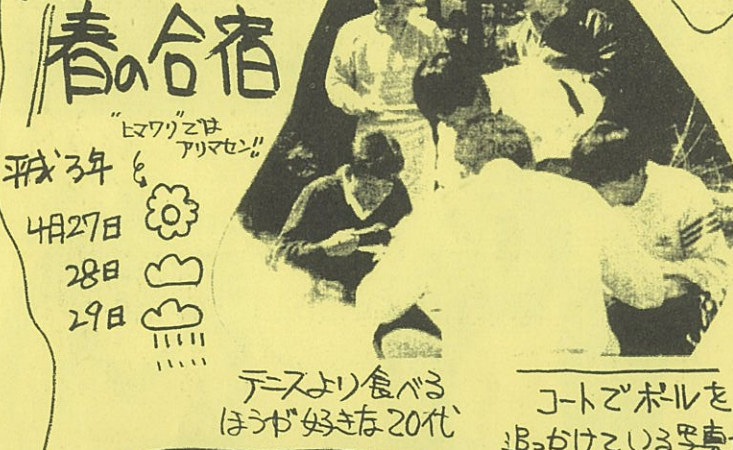 春の合宿
"ヒマワリ"では
アリマセン!!
平成3年
4月27日
28日
29日
テニスより食べる
ほうが好きな20代
コートでボールを
追っかけている写真